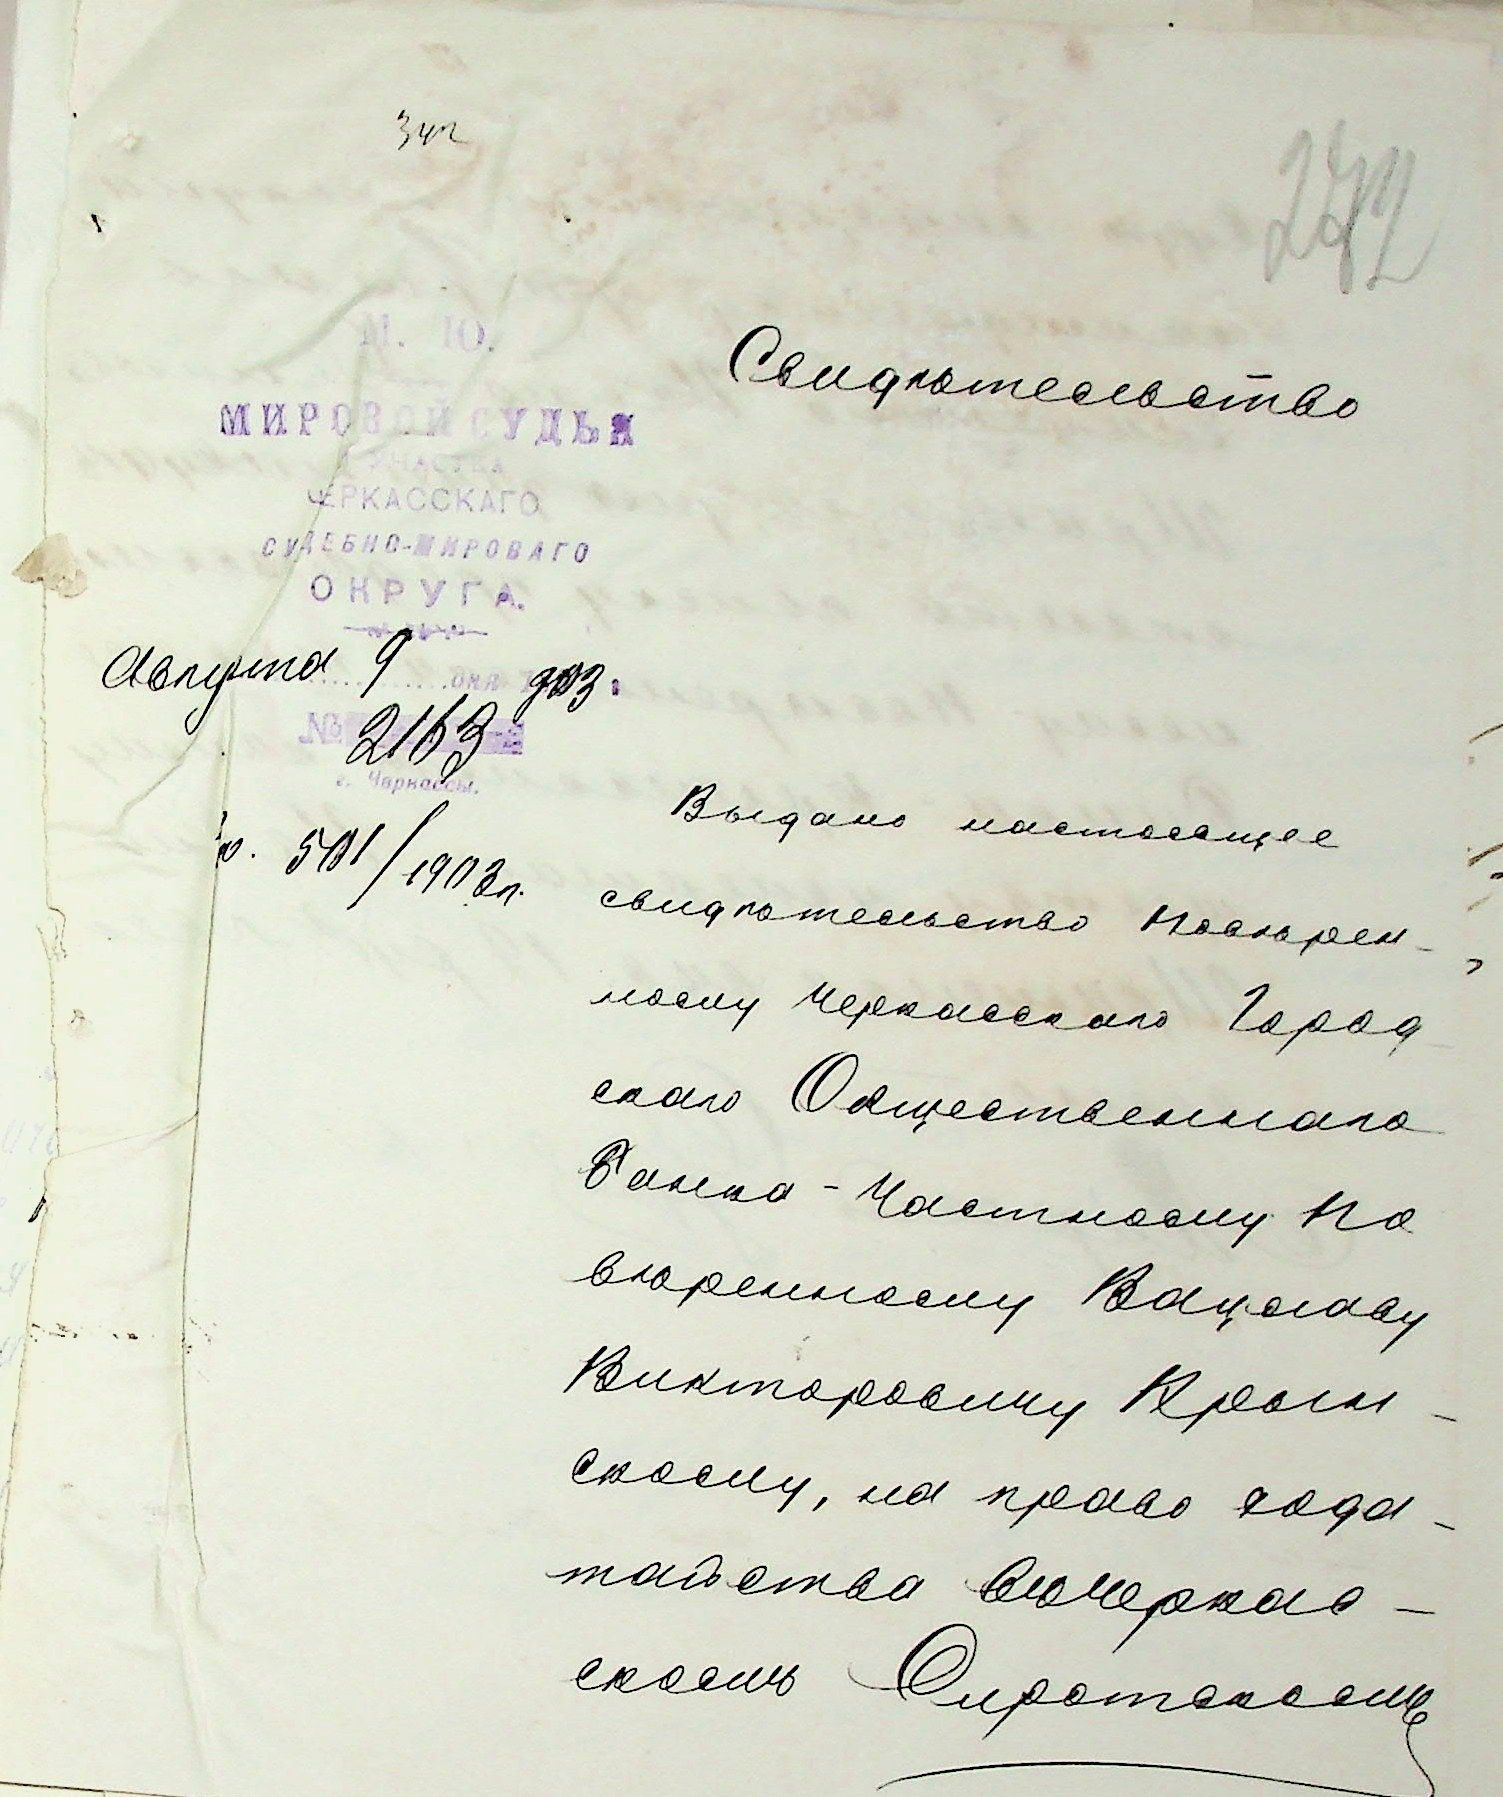 242
Свидѣтельство
М. Ю.
МИРОВОЙ СУДЬЯ
1 УЧАСТКА
ЧЕРКАССКАГО
СУДЕБНО-МИРОВАГО
ОКРУГА.
Августа 9 дня 1903.
№ 2163
г. Черкассы.
501/1903 г.
Выдано настоящее
свидѣтельство Повѣрен-
ному Черкасскаго Город
скаго Общественнаго
Банка - Частному По
вѣренному Вацлаву
Викторовичу Крын-
скому, на право хода-
тайства въ Черкас-
скомъ Сиротскомъ